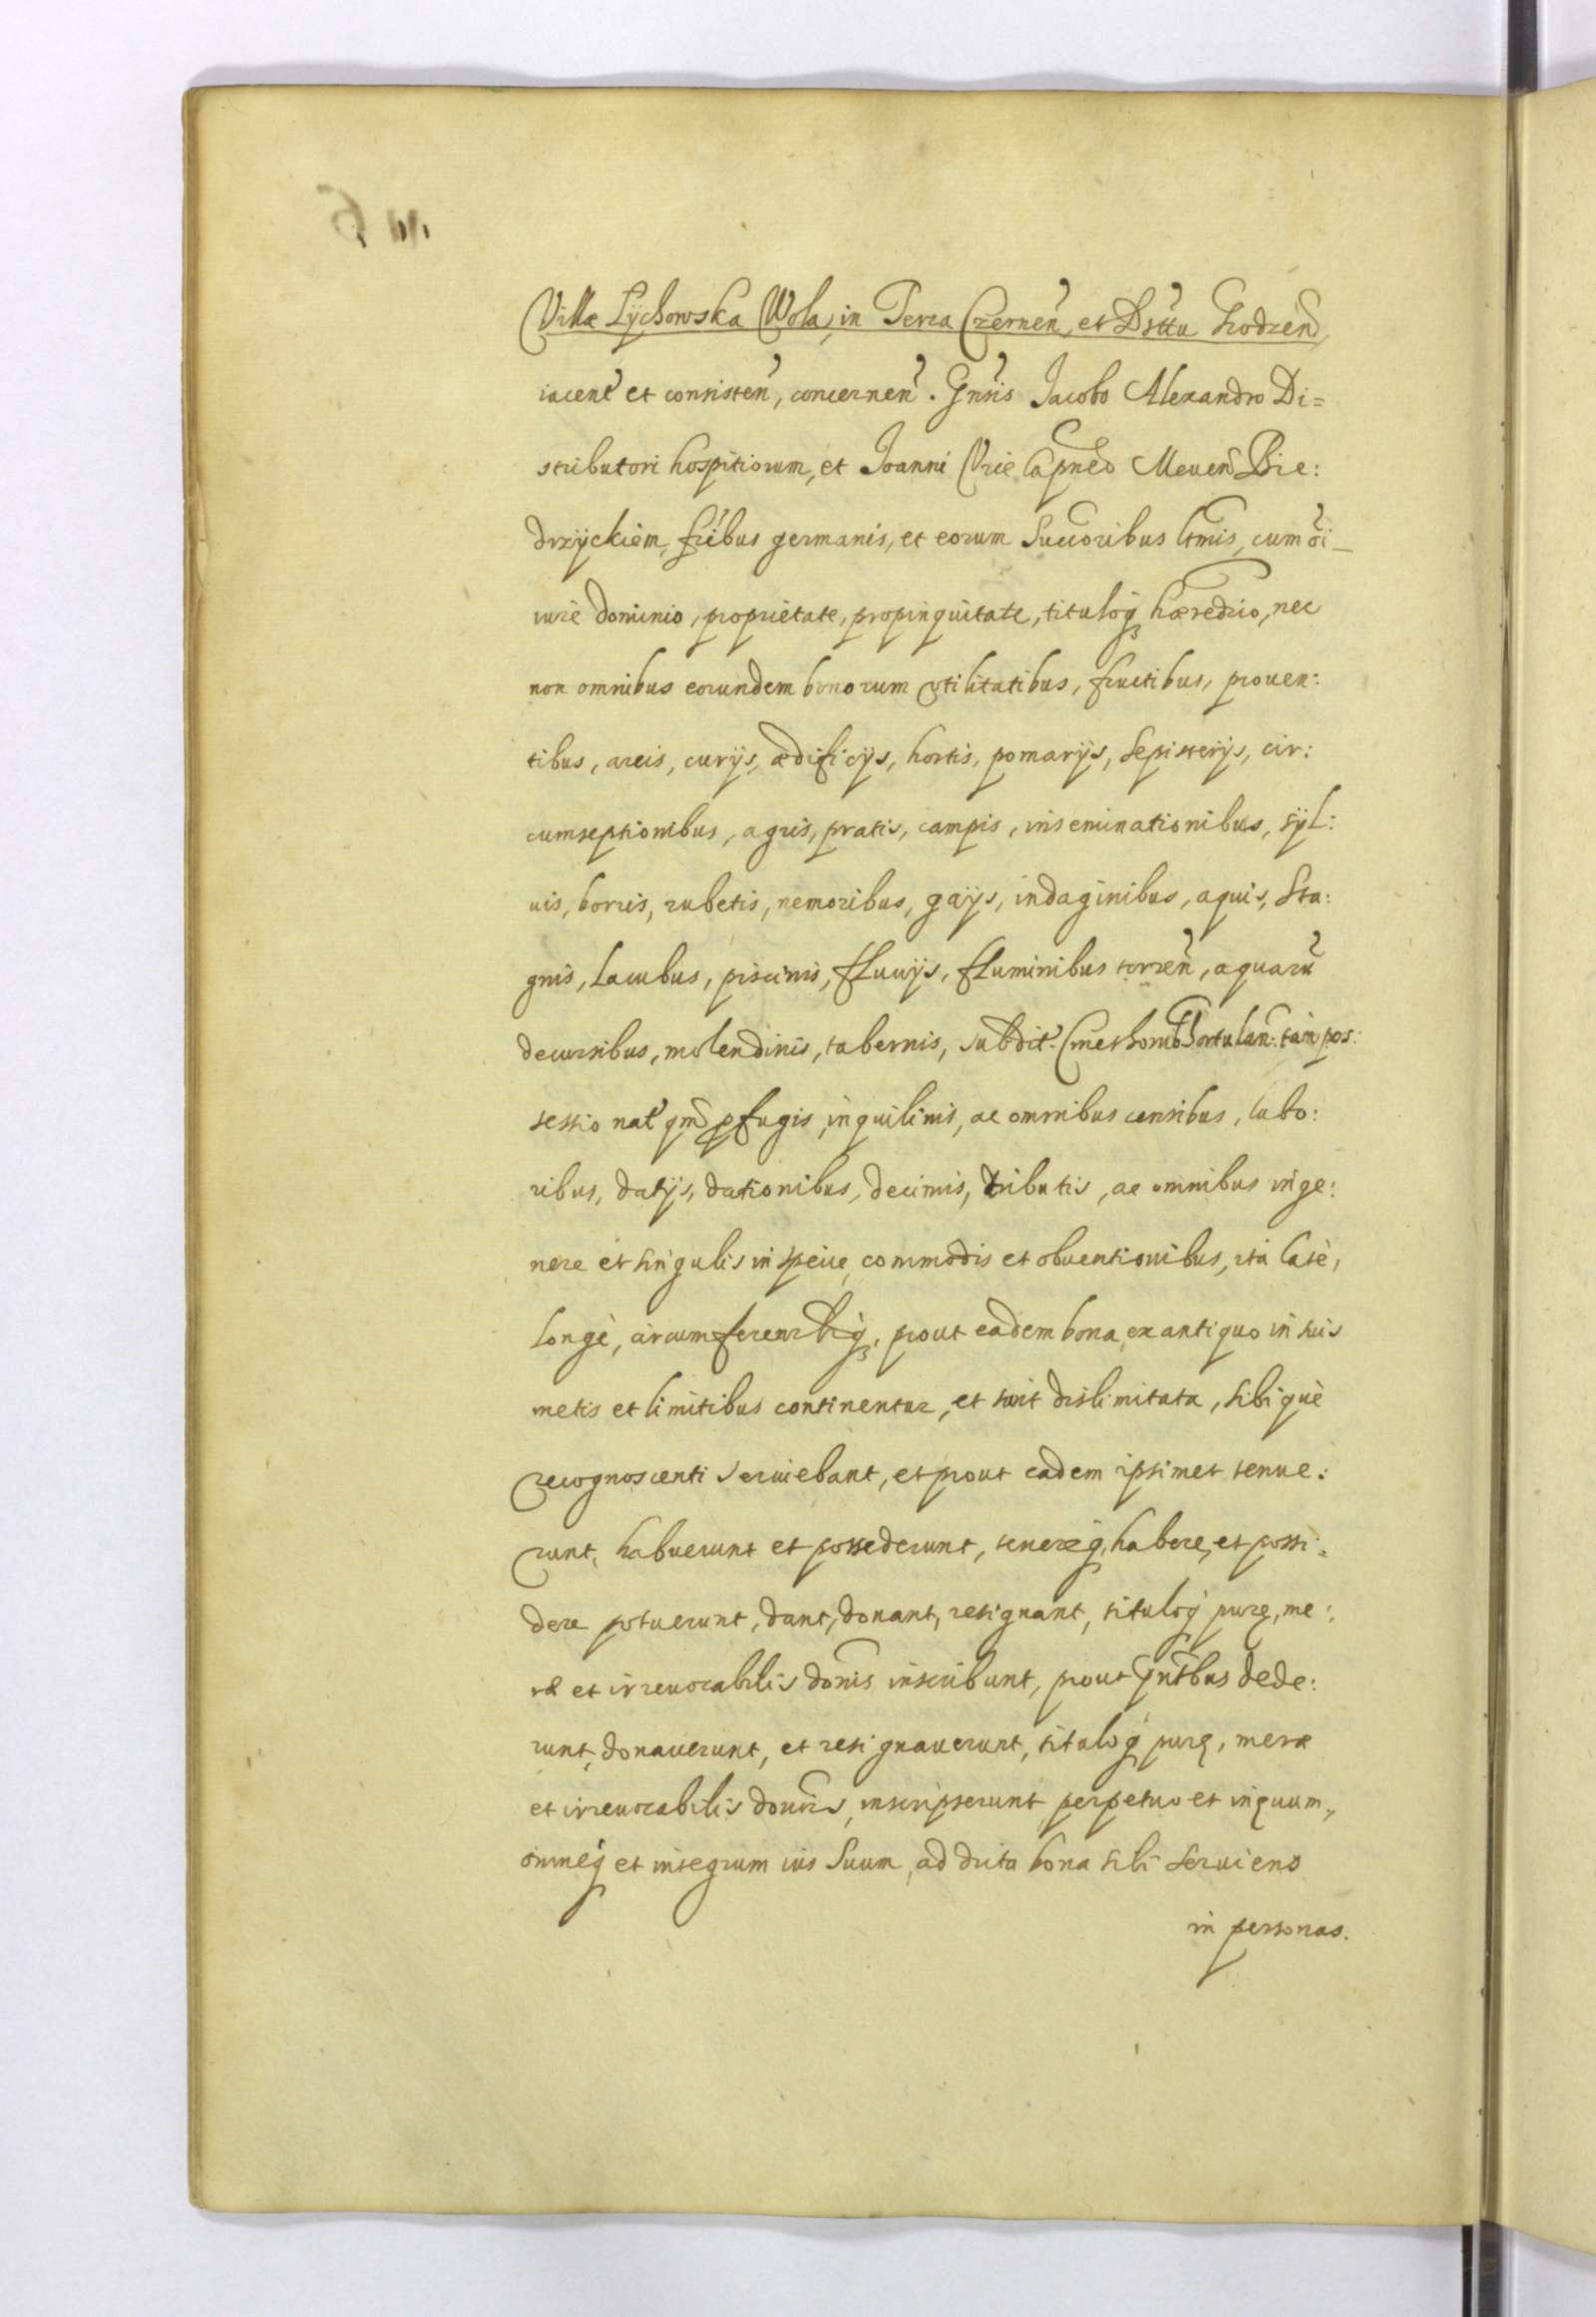 Villæ Lÿchowska Wola, in Terra Czernen̄, et Dsttu Grodzen̄,
iacent̄ et consisten̄, concernen̄. Gnsis Jacobo Alexandro Di=
stributori hospitiorum, et Joanni Vice Capneo Meuen̄ Bie:
drzÿckiem, fribus germanis, et eorum Succoribus ltmis, cum oi_
iure dominio, proprietate, propinquitate, tituloq̨ hæredrio, nec
non omnibus eorundem bonorum vtilitatibus, fructibus, prouen:
tibus, areis, curijs, ædificijs, hortis, pomarijs, Sepisterijs, cir:
cumseptionibus, agris, pratis, campis, inseminationibus, sÿl:
uis, borris, rubetis, nemoribus, gaÿs, indaginibus, aquis, Sta:
gnis, Lacubus, piscinis, fluuijs, fluminibus torren̄, aquarū
decursibus, molendinis, tabernis, subdit. Cmethonib Hortulan: tam pos:
sessionat qm̄ pfugis, inquilinis, ac omnibus censibus, labo:
ribus, datijs, dationibus, decimis, tributis, ac omnibus inge:
nere et singulis in spēie, commodis et obuentionibus, ita latè,
longè, circumferentrq̨, prout eadem bona, ex antiquo in suis
metis et limitibus continentur, et sunt dislimitata, sibiquè
recognoscenti seruiebant, et prout eadem ipsimet tenue:
runt, habuerunt et possederunt, tenereq̨, habere, et possi:
dere potuerunt, dant, donant, resignant, tituloq̨ puręe, me:
ræ et irreuocabilis donīs inscribunt, prout Pntbus dede:
runt, donauerunt, et resignauerunt, tituloq̨ puræ, meræ
et irreuocabilis donīs, inscripserunt perpetuo et inæuum,
omneq̨ et integrum ius Suum, ad dicta bona sibi Seruiens
in personas.